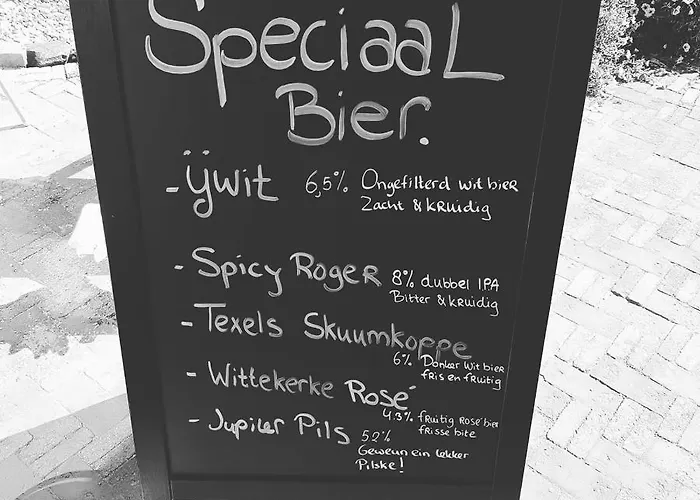 Speciaal
Bier.
- ÿwit 6,5% Ongefilterd wit bier
Zacht & kruidig
- Spicy Roger 8% dubbel IPA
Bitter & kruidig
- Texels Skuumkoppe
6% Donker Wit bier
fris en fruitig
- Wittekerke Rosé
4.3% fruitig Rosé bier
frisse bite
- Jupiler Pils 5.2%
Geweun ein lekker
Pilske!